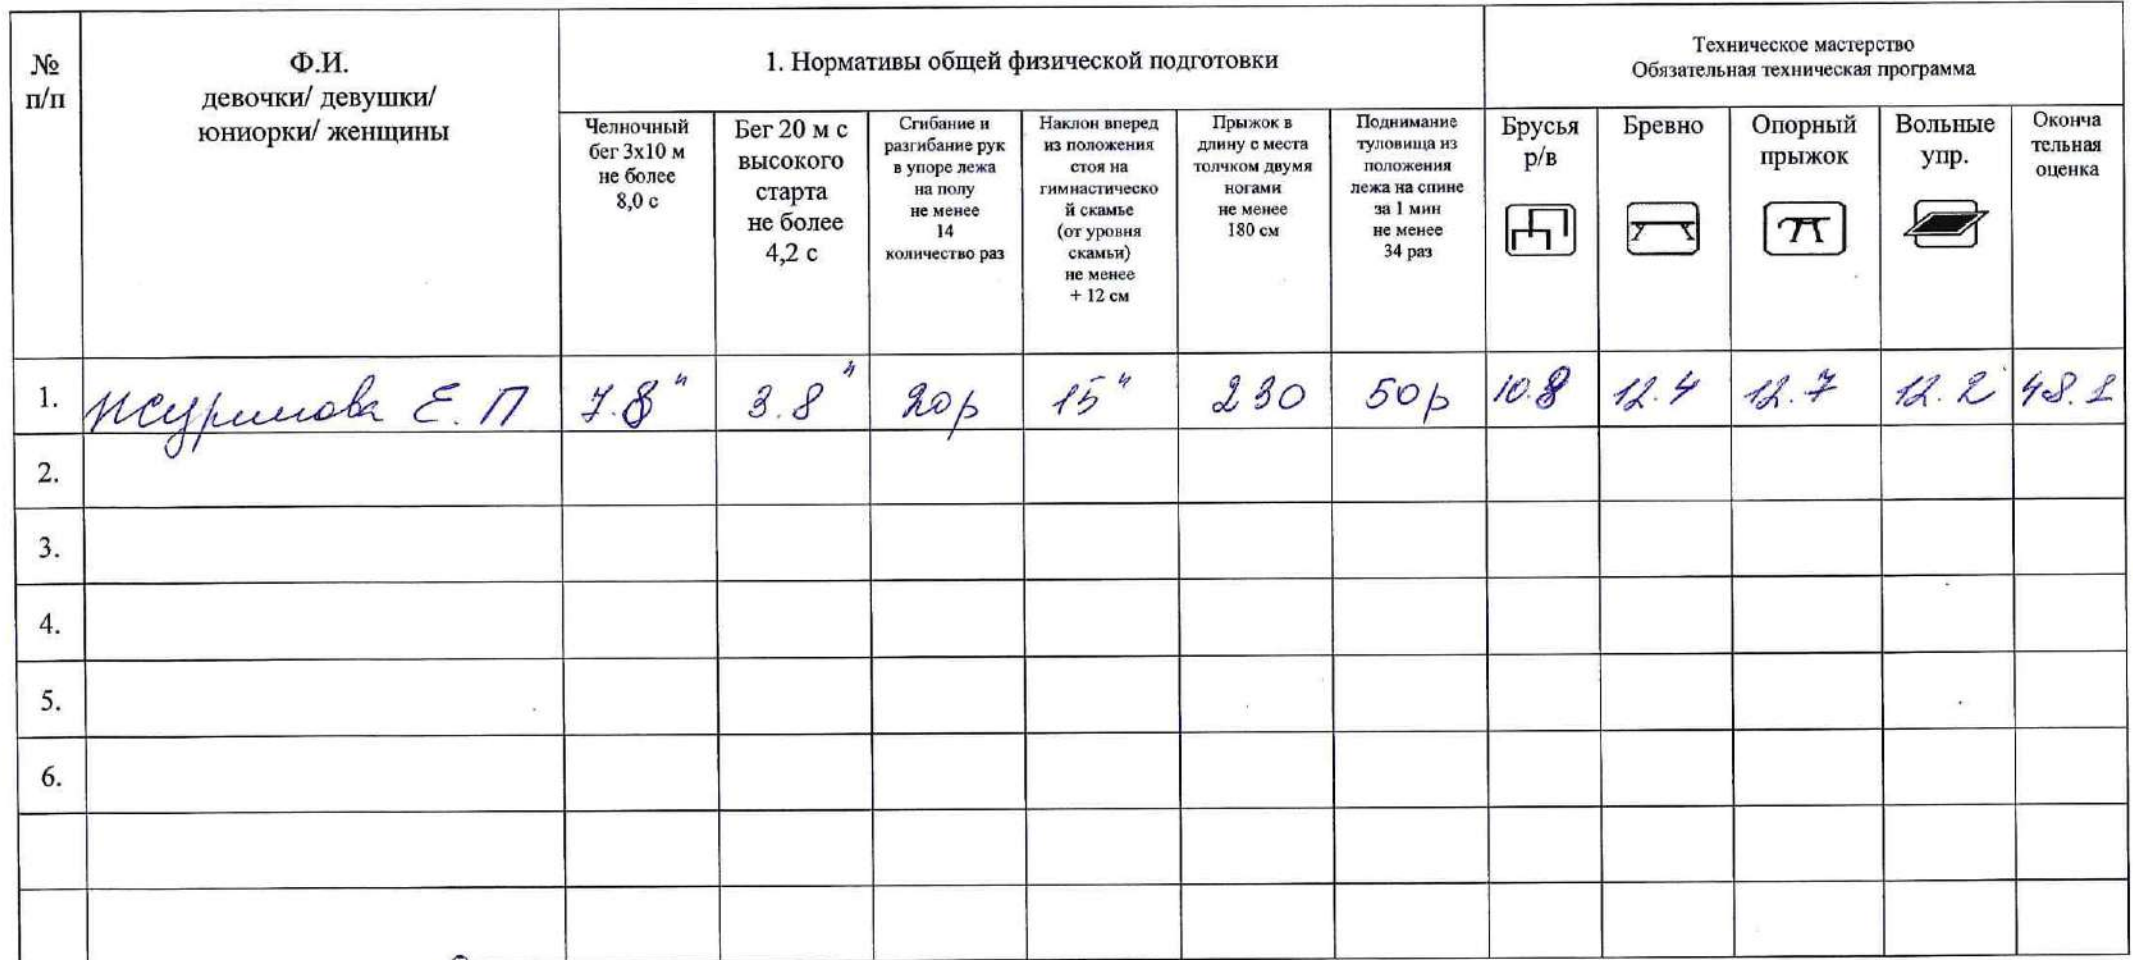 №
п/п
Ф.И.
девочки/ девушки/
юниорки/ женщины
1. Нормативы общей физической подготовки
Техническое мастерство
Обязательная техническая программа
Челночный
бег 3х10 м
не более
8,0 с
Бег 20 м с
высокого
старта
не более
4,2 с
Сгибание и
разгибание рук
в упоре лежа
на полу
не менее
14
количество раз
Наклон вперед
из положения
стоя на
гимнастическо
й скамье
(от уровня
скамьи)
не менее
+ 12 см
Прыжок в
длину с места
толчком двумя
ногами
не менее
180 см
Поднимание
туловища из
положения
лежа на спине
за 1 мин
не менее
34 раз
Брусья
р/в
Бревно
Опорный
прыжок
Вольные
упр.
Оконча
тельная
оценка
1. Е. П 7.8" 3.8" 20р 15" 230 50р 10.8 12.4 12.7 12.2 48.1
2.
3.
4.
5.
6.